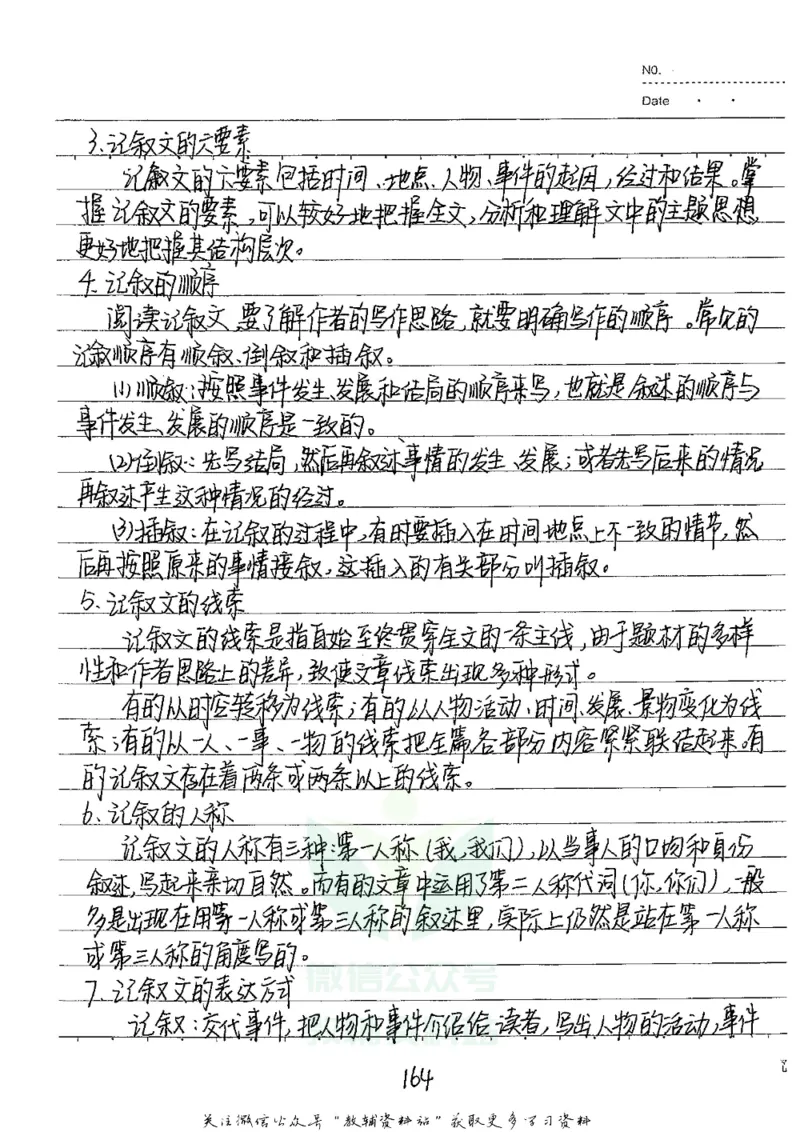 NO.
Date
3、记叙文的六要素
记叙文的六要素包括时间、地点、人物、事件的起因,经过和结果。掌
握记叙文的要素,可以较好地把握全文,分析和理解文中的主题思想
更好地把握其结构层次。
4、记叙的顺序
阅读记叙文,要了解作者的写作思路,就要明确写作的顺序。常见的
记叙顺序有顺叙、倒叙和插叙。
(1)顺叙:按照事件发生、发展和结局的顺序来写,也就是叙述的顺序与
事件发生、发展的顺序是一致的。
(2)倒叙:先写结局,然后再叙述事情的发生、发展;或者先写后来的情况
再叙述产生这种情况的经过。
(3)插叙:在记叙的过程中,有时要插入在时间地点上不一致的情节,然
后再按照原来的事情接叙,这插入的有关部分叫插叙。
5、记叙文的线索
记叙文的线索是指自始至终贯穿全文的一条主线,由于题材的多样
性和作者思路上的差异,致使文章线索出现多种形式。
有的从时空转移为线索;有的以人物活动、时间、发展、景物变化为线
索;有的从一人、一事、一物的线索把全篇各部分内容紧紧联结起来。有
的记叙文存在着两条或两条以上的线索。
6、记叙的人称
记叙文的人称有三种:第一人称(我,我们),以当事人的口吻和身份
叙述,写起来亲切自然。而有的文章中运用了第二人称代词(你,你们),一般
多是出现在用第一人称或第三人称的叙述里,实际上仍然是站在第一人称
或第三人称的角度写的。
微信公众号
7、记叙文的表达方式
记叙:交代事件,把人物和事件介绍给读者,写出人物的活动,事件
164
关注微信公众号"教辅资料站"获取更多学习资料